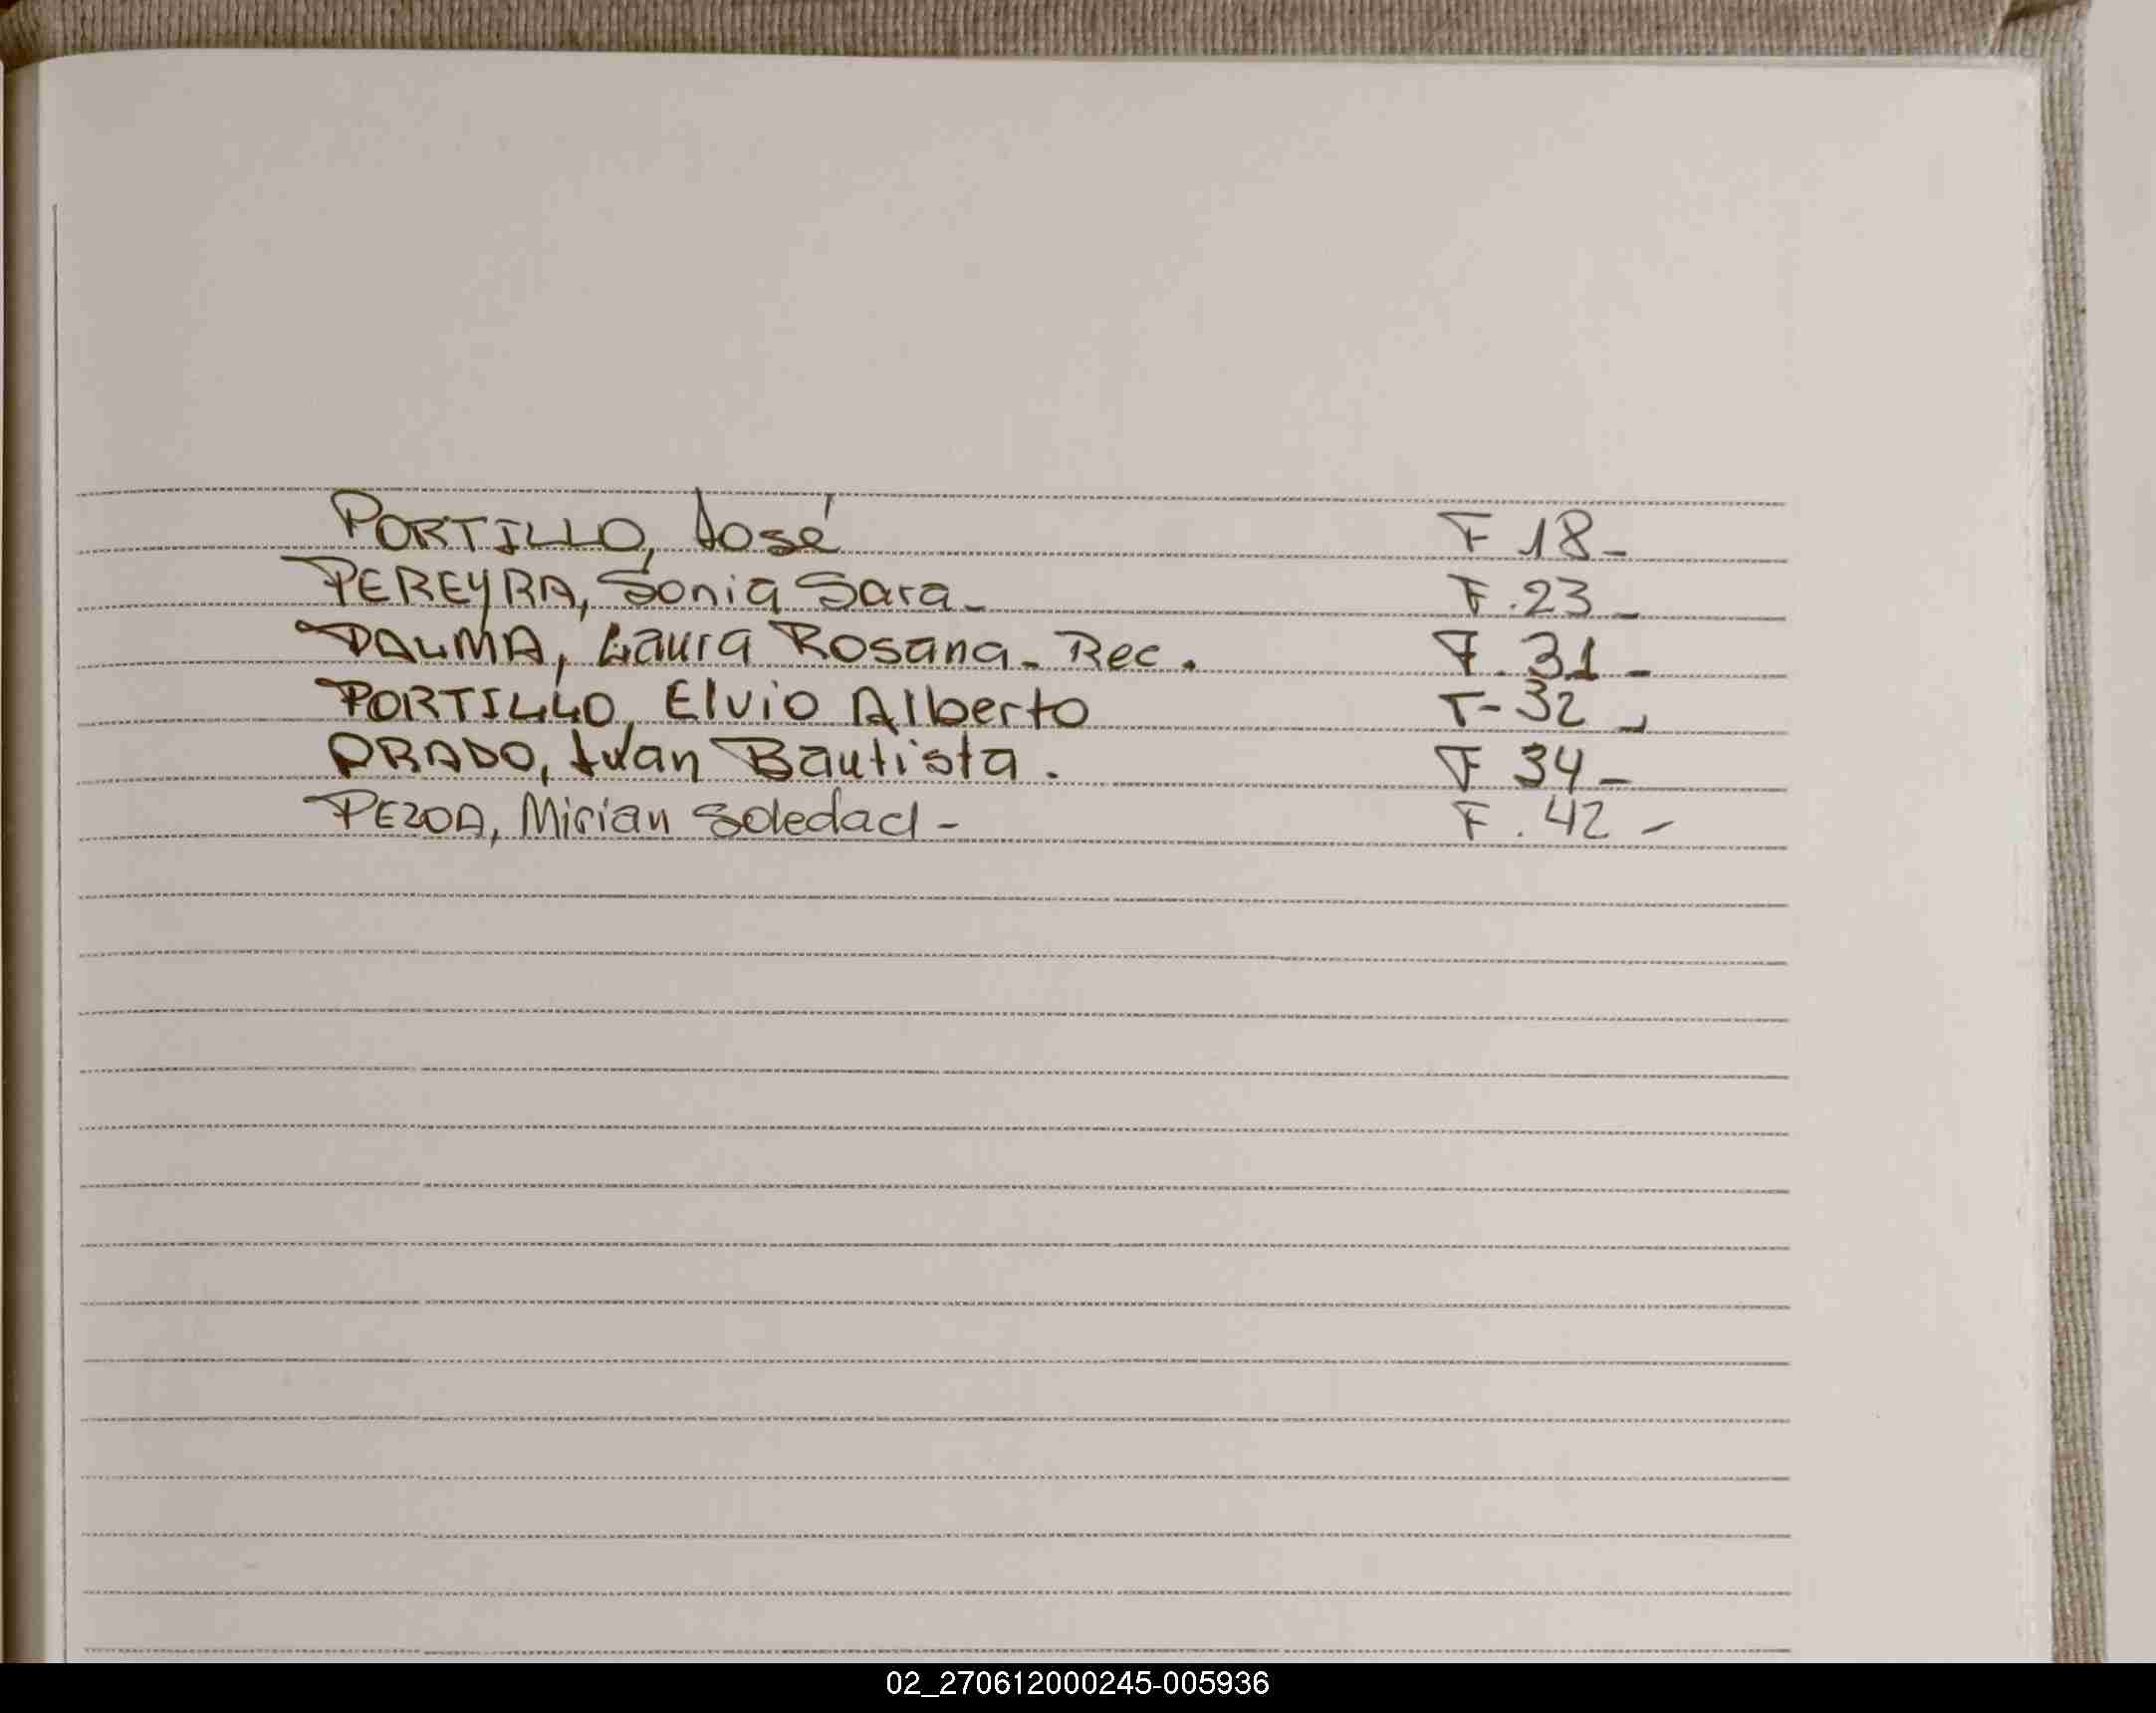 PORTILLO, José F 18-
PEREYRA, Sonia Sara- F.23-
PALMA, Laura Rosana- Rec. F.31-
PORTILLO, Elvio Alberto F-32-
PRADO, Bautista. F 34-
PEZOA, Mirian Soledad- F.42-
02_270612000245-005936